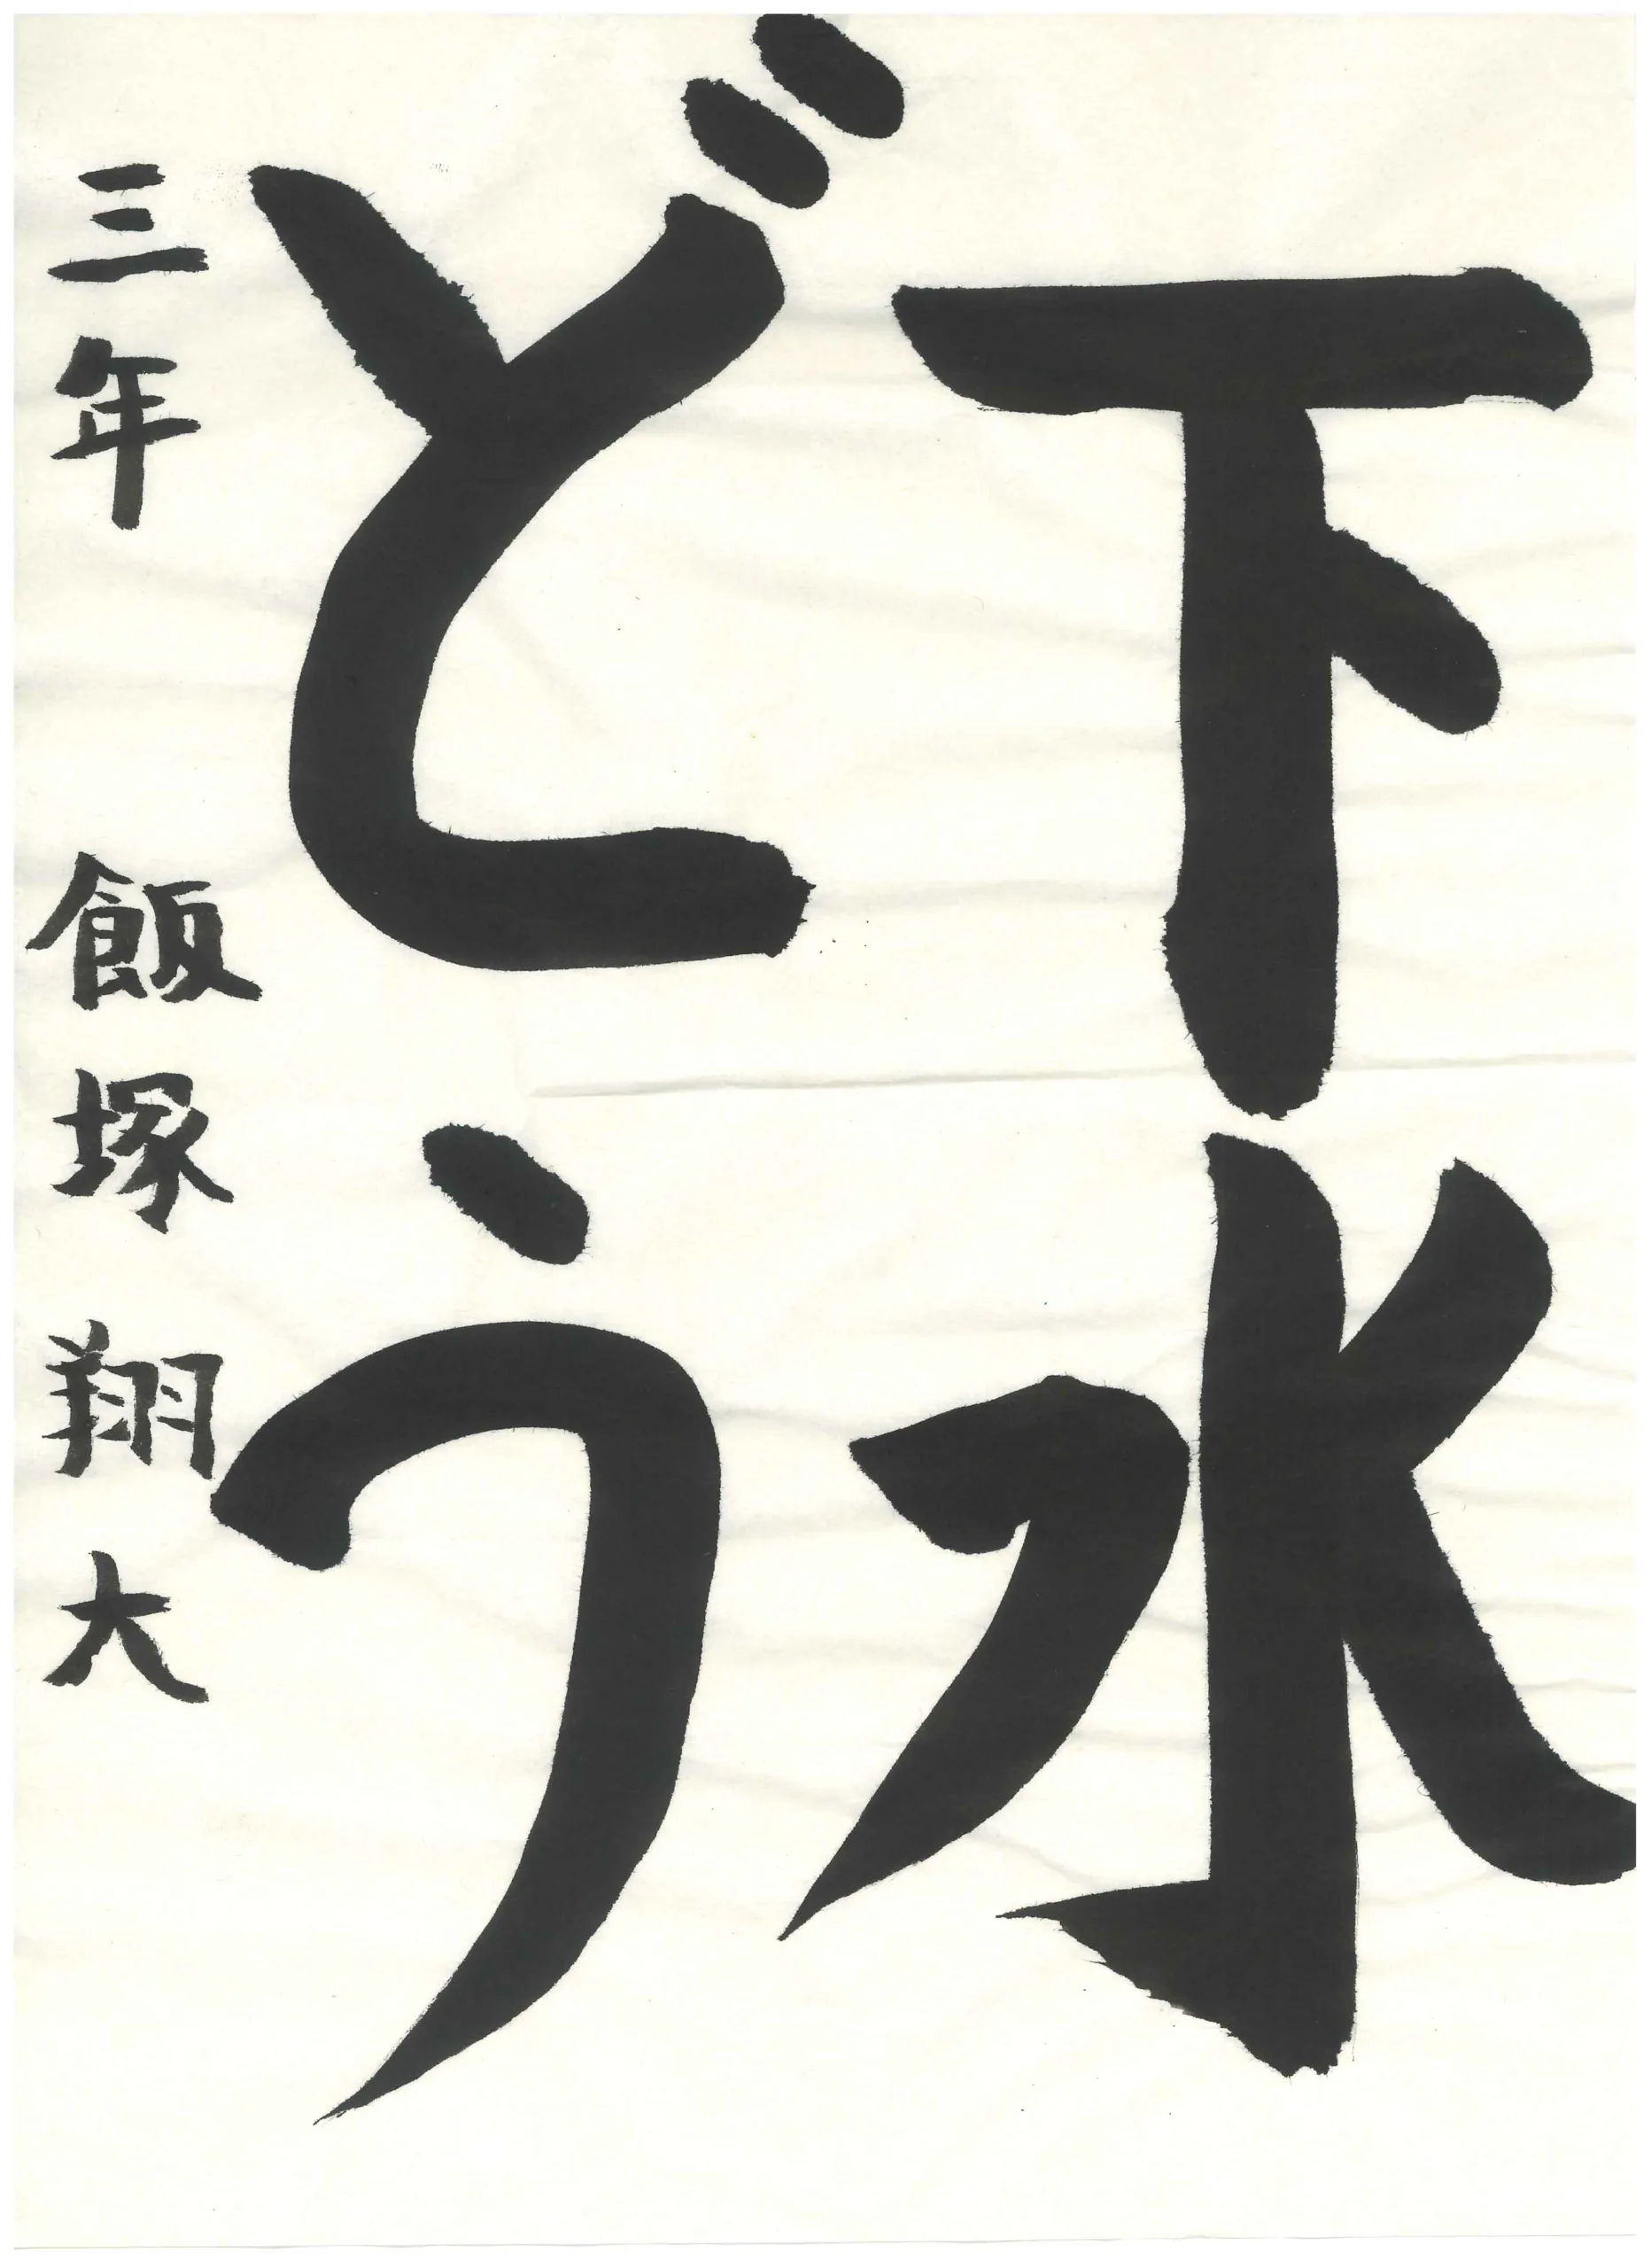 下水
どう
三年 飯塚翔大